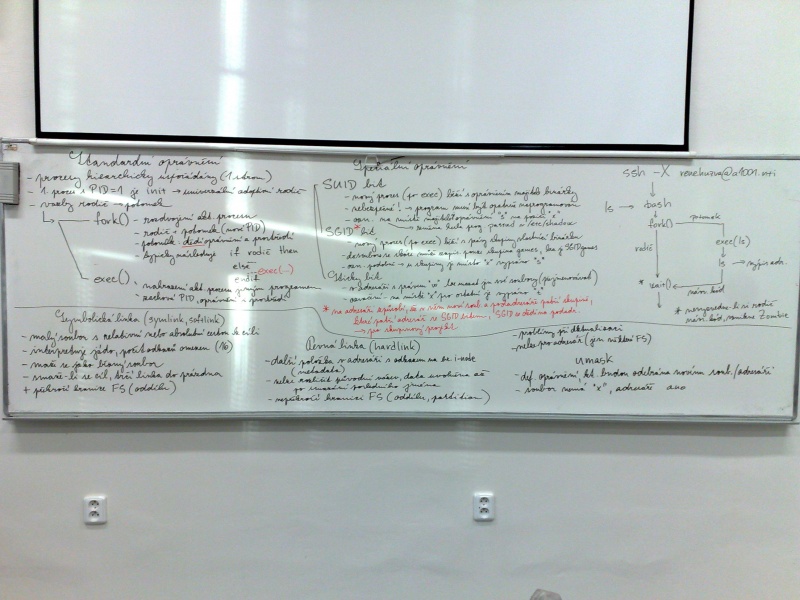 Standardní oprávnění
- procesy hierarchicky uspořádány (1 strom)
- 1. proces s PID=1 je init → univerzální adoptivní rodič
- vazby rodič → potomek
fork() - rozdvojení akt. procesu
- rodič + potomek (nové PID)
- potomek dědí oprávnění a prostředí
- typicky následuje if rodič then
else
exec(...)
endif
exec() - nahrazení akt. procesu jiným programem
- zachová PID, oprávnění a prostředí
Speciální oprávnění
SUID bit
- nový proces (po exec) běží s oprávněním majitele binárky
- nebezpečné! → program musí být opatrně naprogramován
- ozn. na místě majitele "s"
/etc/shadow
SGID* bit
- nový proces (po exec) běží s právy skupiny vlastnící binárku
games, SGID games
- ozn. podobně u skupiny je místo "x" vypsáno "s"
Sticky bit
- u adresáře s právem "w" lze mazat jen své soubory (přejmenovávat)
- označení - na místě "x" pro ostatní je vypsáno "t"
* na adresáři způsobí, že v něm nové soub. a podadresáře patří skupině,
které patří adresář se SGID bitem, SGID se dědí na podadr.
→ pro skupinový projekt
ssh -X
ls → bash
fork() potomek
rodič
exec(ls)
ls
* wait()
návr. kód
* nevyzvedne-li si rodič
návr. kód, vznikne Zombie
Symbolická linka (symlink, softlink)
- malý soubor s relativní nebo absolutní cestou k cíli
- interpretuje jádro, počet odkazů omezen (16)
- maže se jako běžný soubor
- smaže-li se cíl, trčí linka do prázdna
+ překročí hranice FS (oddílu)
Pevná linka (hardlink)
- další položka v adresáři s odkazem na tu i-node
(metadata)
- nelze rozlišit původní název, data uvolněna až
po smazání posledního jména
- nepřekročí hranici FS (oddílu, partition)
- problémy při
- nelze pro adresář (jen některé FS)
umask
- def. oprávnění, kt. budou odebrána novým soub./adresáři
- soubor nemá "x", adresáře ano